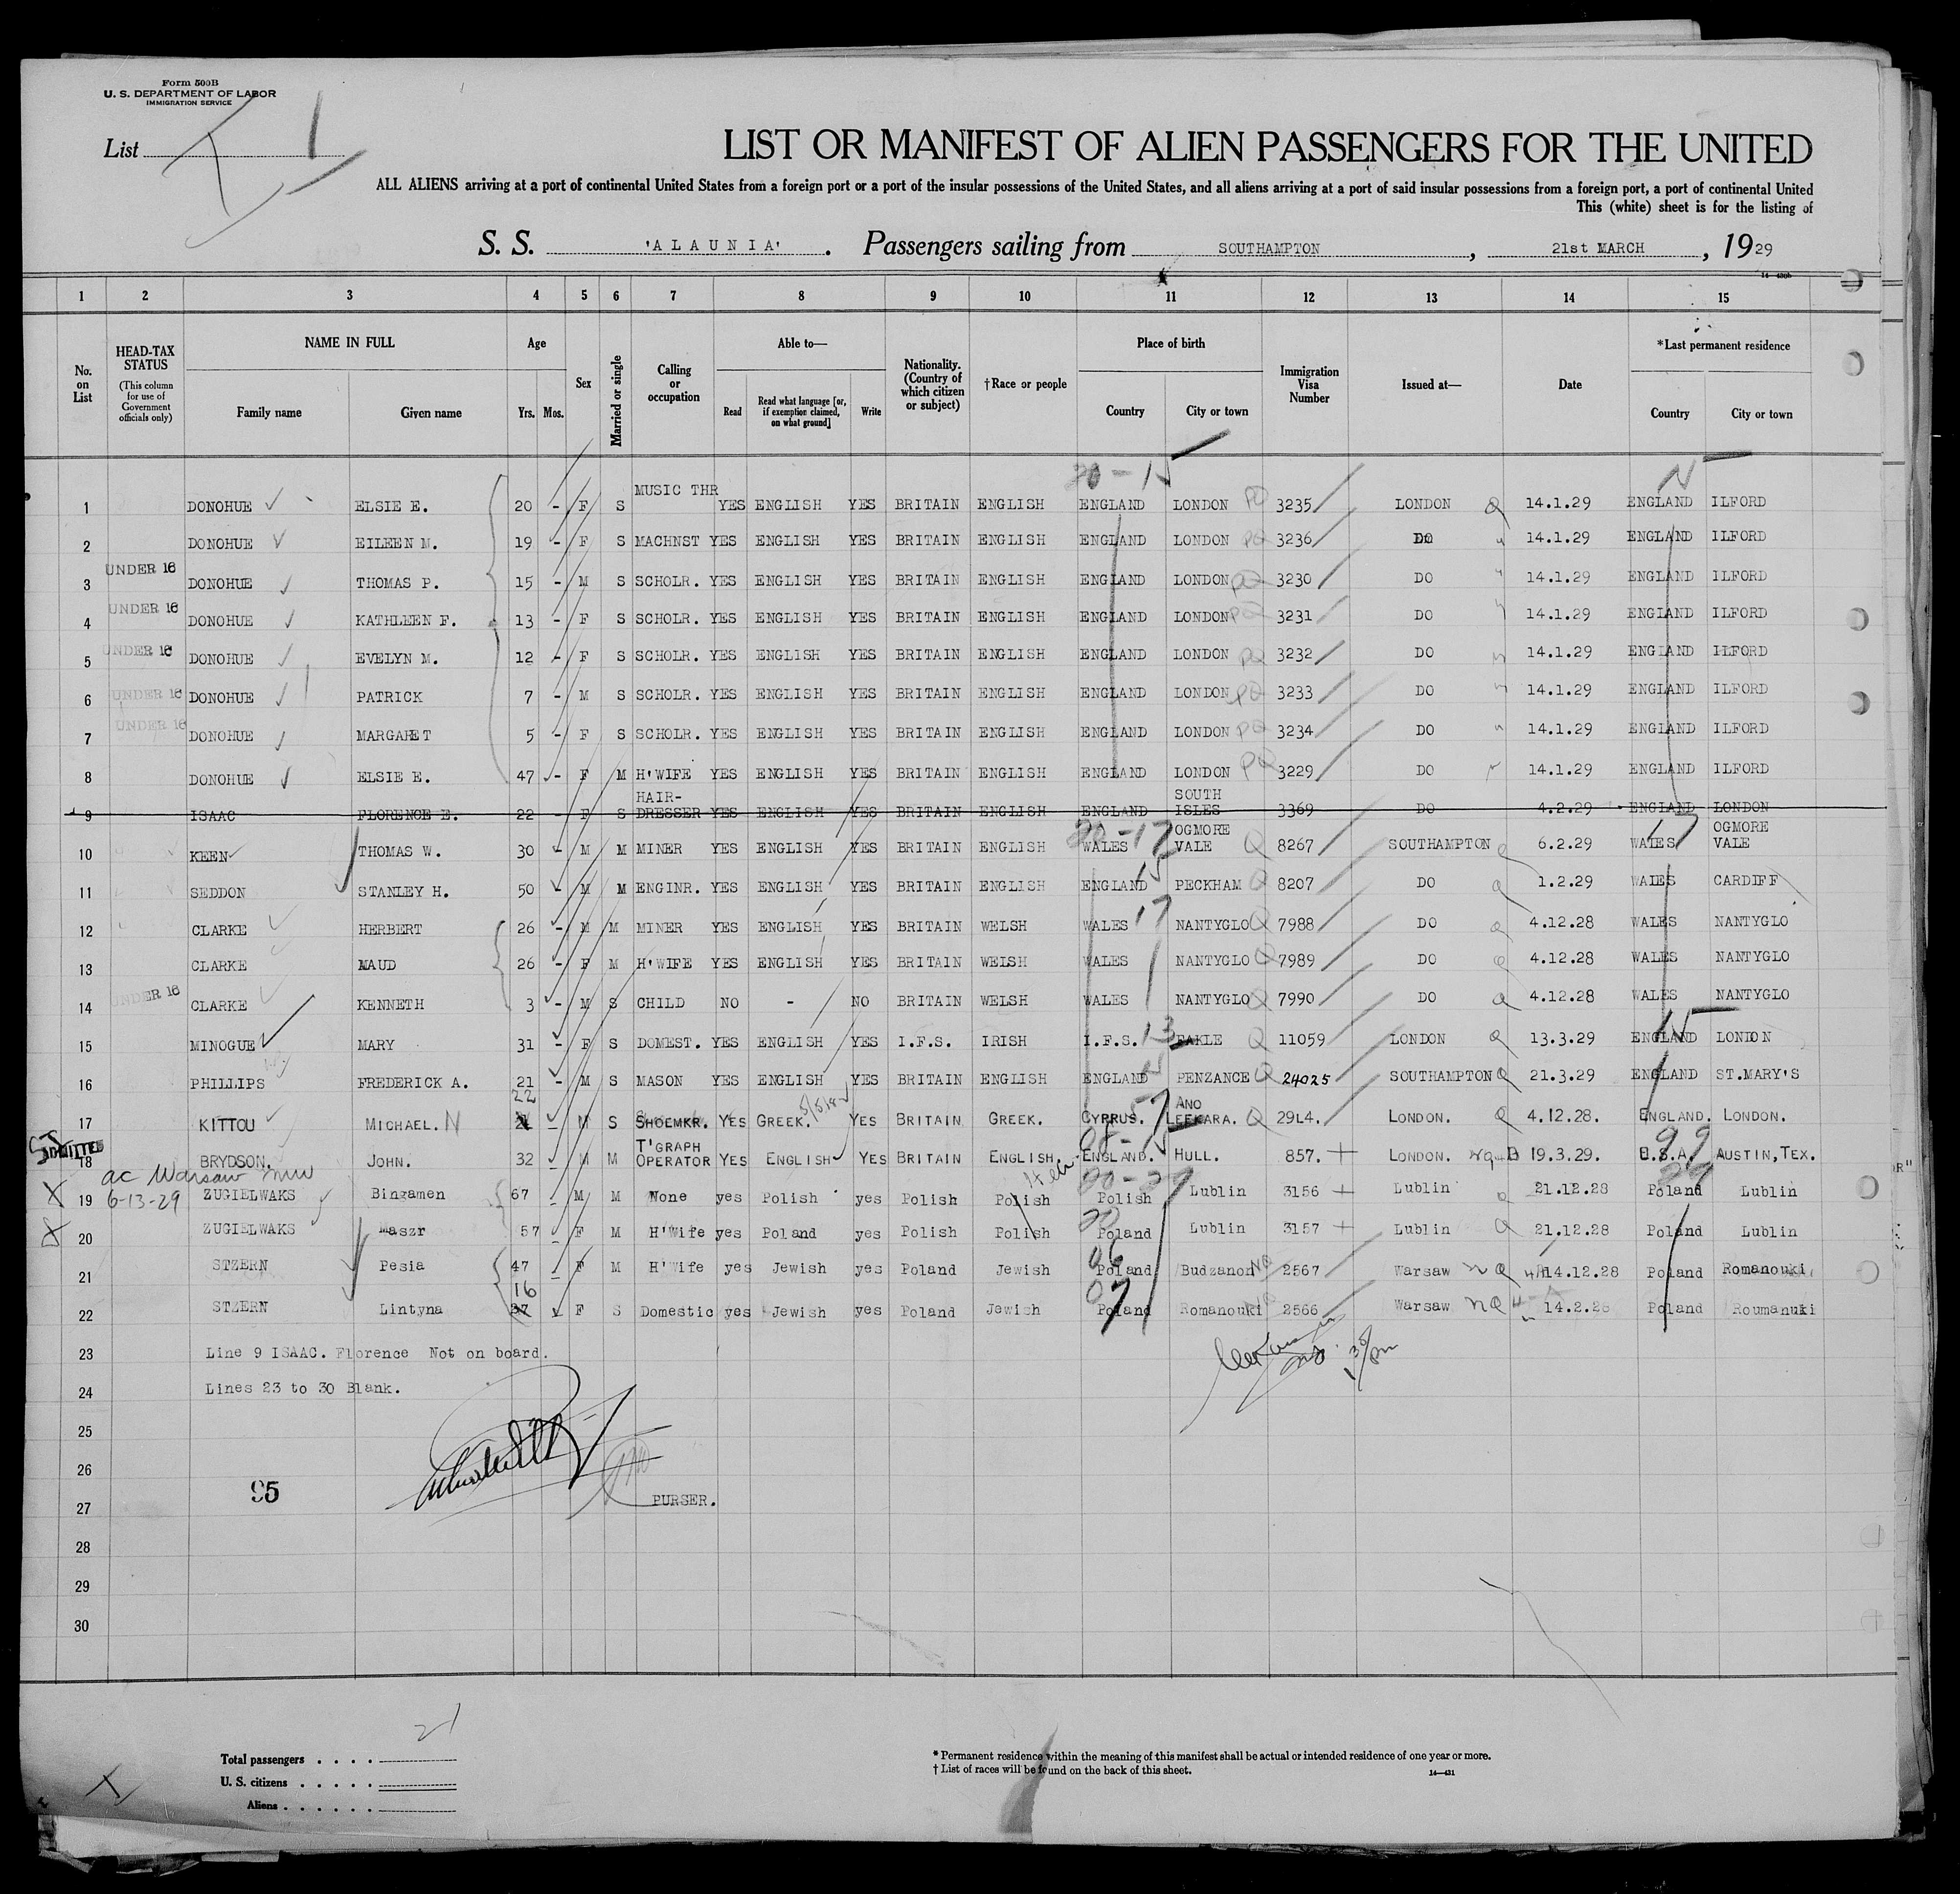 Form 500B
U. S. DEPARTMENT OF LABOR
IMMIGRATION SERVICE
List 1
LIST OR MANIFEST OF ALIEN PASSENGERS FOR THE UNITED
ALL ALIENS arriving at a port of continental United States from a foreign port or a port of the insular possessions of the United States, and all aliens arriving at a port of said insular possessions from a foreign port, a port of continental United
This (white) sheet is for the listing of
S. S. 'ALAUNIA'. Passengers sailing from SOUTHAMPTON, 21st MARCH, 1929
1 2 3 4 5 6 7 8 9 10 11 12 13 14 15
No. on List
HEAD-TAX STATUS (This column for use of Government officials only)
NAME IN FULL Family name Given name
Age Yrs. Mos.
Sex
Married or single
Calling or occupation
Able to— Read Read what language [or, if exemption claimed, on what ground] Write
Nationality. (Country of which citizen or subject)
†Race or people
Place of birth Country City or town
Immigration Visa Number
Issued at—
Date
*Last permanent residence Country City or town
20-15
1 DONOHUE ELSIE E. 20 - F S MUSIC THR YES ENGLISH YES BRITAIN ENGLISH ENGLAND LONDON PQ 3235 LONDON Q 14.1.29 ENGLAND ILFORD
2 DONOHUE EILEEN M. 19 - F S MACHNST YES ENGLISH YES BRITAIN ENGLISH ENGLAND LONDON PQ 3236 DO 14.1.29 ENGLAND ILFORD
3 UNDER 16 DONOHUE THOMAS P. 15 - M S SCHOLR. YES ENGLISH YES BRITAIN ENGLISH ENGLAND LONDON PQ 3230 DO 14.1.29 ENGLAND ILFORD
4 UNDER 16 DONOHUE KATHLEEN F. 13 - F S SCHOLR. YES ENGLISH YES BRITAIN ENGLISH ENGLAND LONDON PQ 3231 DO 14.1.29 ENGLAND ILFORD
5 UNDER 16 DONOHUE EVELYN M. 12 - F S SCHOLR. YES ENGLISH YES BRITAIN ENGLISH ENGLAND LONDON PQ 3232 DO 14.1.29 ENGLAND ILFORD
6 UNDER 16 DONOHUE PATRICK 7 - M S SCHOLR. YES ENGLISH YES BRITAIN ENGLISH ENGLAND LONDON PQ 3233 DO 14.1.29 ENGLAND ILFORD
7 UNDER 16 DONOHUE MARGARET 5 - F S SCHOLR. YES ENGLISH YES BRITAIN ENGLISH ENGLAND LONDON PQ 3234 DO 14.1.29 ENGLAND ILFORD
8 DONOHUE ELSIE E. 47 - F M H'WIFE YES ENGLISH YES BRITAIN ENGLISH ENGLAND LONDON PQ 3229 DO 14.1.29 ENGLAND ILFORD
9 ISAAC FLORENCE E. 22 - F S HAIR-DRESSER YES ENGLISH YES BRITAIN ENGLISH ENGLAND SOUTH ISLES 3369 DO 4.2.29 ENGLAND LONDON
10 KEEN THOMAS W. 30 - M M MINER YES ENGLISH YES BRITAIN ENGLISH WALES 17 OGMORE VALE Q 8267 SOUTHAMPTON Q 6.2.29 WALES OGMORE VALE
11 SEDDON STANLEY H. 50 - M M ENGINR. YES ENGLISH YES BRITAIN ENGLISH ENGLAND 15 PECKHAM Q 8207 DO Q 1.2.29 WALES CARDIFF
12 CLARKE HERBERT 26 - M M MINER YES ENGLISH YES BRITAIN WELSH WALES 17 NANTYGLO Q 7988 DO Q 4.12.28 WALES NANTYGLO
13 CLARKE MAUD 26 - F M H'WIFE YES ENGLISH YES BRITAIN WELSH WALES NANTYGLO Q 7989 DO Q 4.12.28 WALES NANTYGLO
14 UNDER 16 CLARKE KENNETH 3 - M S CHILD NO - NO BRITAIN WELSH WALES NANTYGLO Q 7990 DO Q 4.12.28 WALES NANTYGLO
15 MINOGUE MARY 31 - F S DOMEST. YES ENGLISH YES I.F.S. IRISH I.F.S. 13 Q 11059 LONDON Q 13.3.29 ENGLAND 15 LONDON
16 PHILLIPS FREDERICK A. 21 - M S MASON YES ENGLISH YES BRITAIN ENGLISH ENGLAND PENZANCE Q 24025 SOUTHAMPTON Q 21.3.29 ENGLAND ST.MARY'S
17 KITTOU MICHAEL. N 22 - M S SHOEMKR. YES GREEK. YES BRITAIN GREEK. CYPRUS. 57 ANO LEFKARA. Q 29L4. LONDON. Q 4.12.28. ENGLAND. LONDON.
ADMITTED
18 BRYDSON. JOHN. 32 - M M T'GRAPH OPERATOR YES ENGLISH YES BRITAIN ENGLISH. ENGLAND. HULL. 857. LONDON. 19.3.29. U.S.A. 99 AUSTIN, TEX.
ac Warsaw
6-13-29
X 19 ZUGIELWAKS Bingamen 67 - M M None yes Polish yes Polish Polish Polish Lublin 3156 Lublin Q 21.12.28 Poland Lublin
X 20 ZUGIELWAKS Maszr 57 - F M H'Wife yes Poland yes Polish Polish Poland Lublin 3157 Lublin Q 21.12.28 Poland Lublin
21 STZERN Pesia 47 - F M H'Wife yes Jewish yes Poland Jewish Poland 06 Budzanon NQ 2567 Warsaw NQ 14.12.28 Poland Romanouki
22 STZERN Lintyna 16 F S Domestic yes Jewish yes Poland Jewish Poland 07 Romanouki 2566 Warsaw NQ 14.2.28 Poland Roumanuki
23 Line 9 ISAAC. Florence Not on board.
24 Lines 23 to 30 Blank.
25
26
27
95
PURSER.
28
29
30
21
Total passengers
U. S. citizens
Aliens
X
* Permanent residence within the meaning of this manifest shall be actual or intended residence of one year or more.
† List of races will be found on the back of this sheet.
14—431